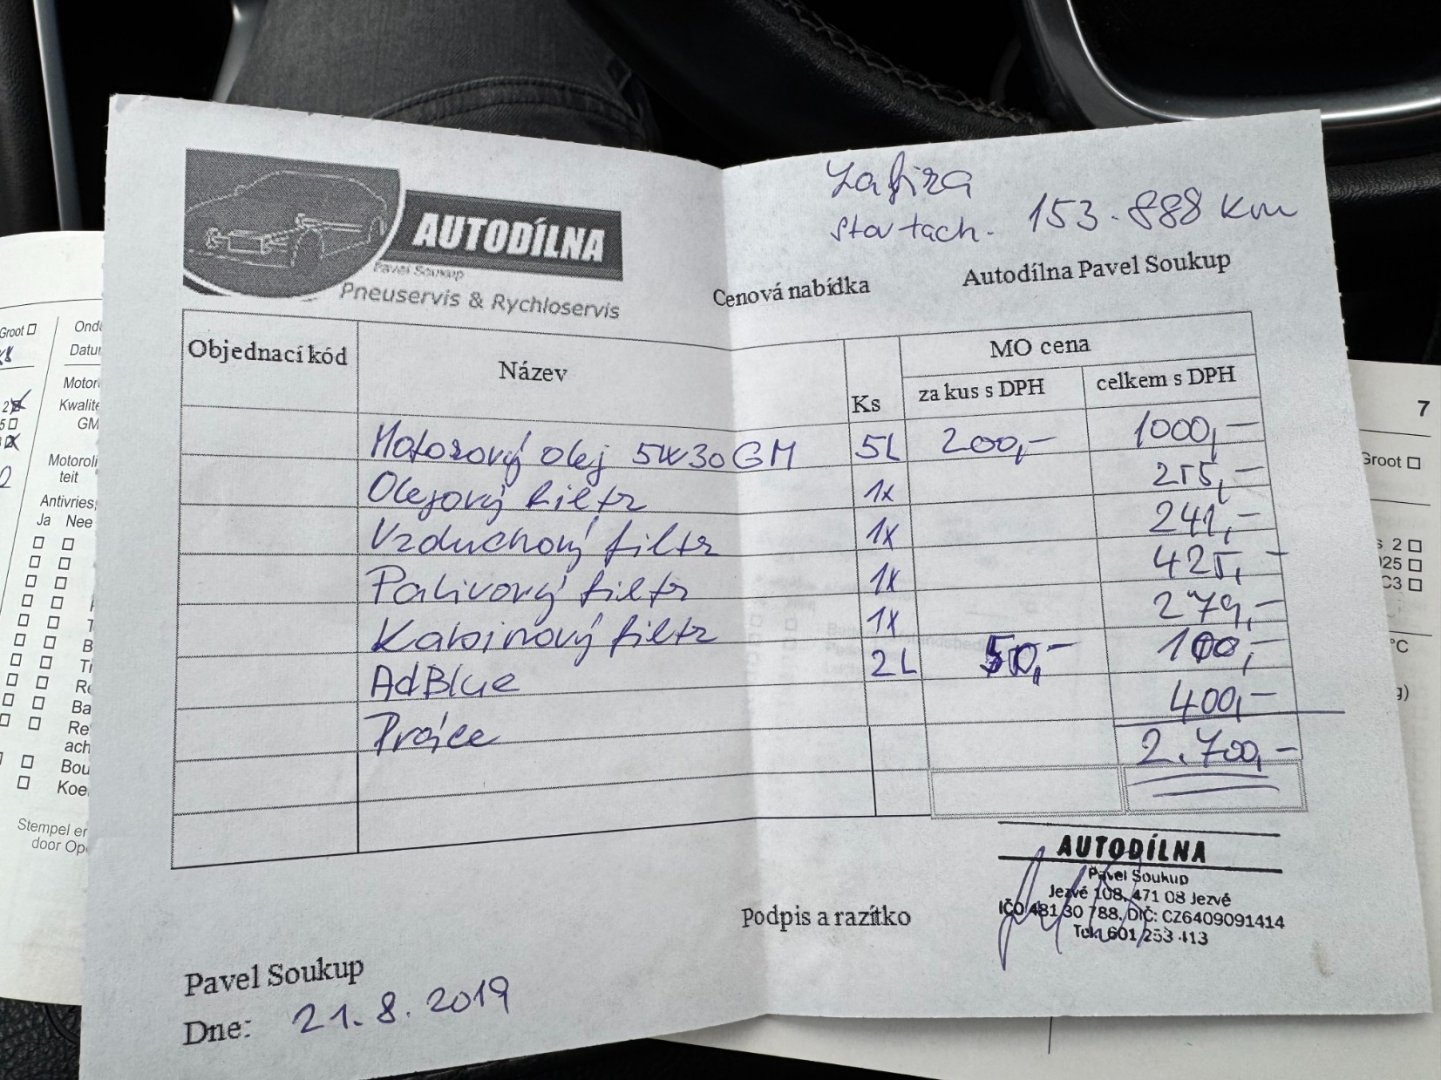 AUTODÍLNA
Pavel Soukup
Pneuservis & Rychloservis
Zafira
Stav tach. 153.888 km
Cenová nabídka
Autodílna Pavel Soukup
Objednací kód Název Ks MO cena
za kus s DPH celkem s DPH
Motorový olej 5W30 GM 5L 200,- 1000,-
Olejový filtr 1x 255,-
Vzduchový filtr 1x 241,-
Palivový filtr 1x 425,-
Kabinový filtr 1x 279,-
AdBlue 2L 50,- 100,-
Práce 400,-
2.700,-
AUTODÍLNA
Pavel Soukup
Jezvé 108, 471 08 Jezvé
IČO 481 30 788, DIČ: CZ6409091414
Tel. 601 253 413
Podpis a razítko
Pavel Soukup
Dne: 21.8.2019
Groot
Datu
Motor
Kwalite
GM
Motoroli
teit
Antivries,
Ja Nee
Ba
Re
ach
Bou
Koe
Stempel er
door Op
7
Groot
s 2
025
C3
°C